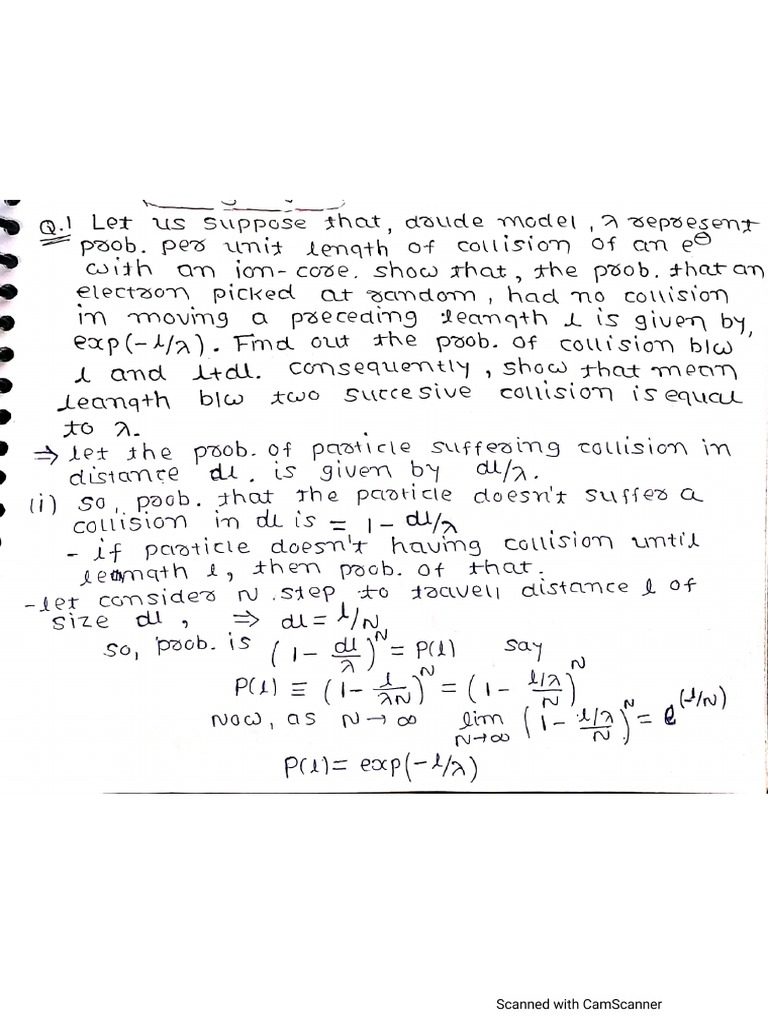 Q.1 Let us suppose that, drude model, λ represent
prob. per unit length of collision of an e⊖
with an ion-core. show that, the prob. that an
electron picked at random, had no collision
in moving a preceding leangth l is given by,
exp(-l/λ). Find out the prob. of collision b/w
l and l+dl. consequently, show that mean
leangth b/w two succesive collision is equal
to λ.
⇒ let the prob. of particle suffering collision in
distance dl. is given by dl/λ.
(i) so, prob. that the particle doesn't suffer a
collision in dl is = 1 - dl/λ
- if particle doesn't having collision until
length l, then prob. of that.
- let consider N step to travell distance l of
size dl, ⇒ dl = l/N
so, prob. is (1 - dl/λ)^N = P(l) say
P(l) ≡ (1 - l/λN)^N = (1 - (l/λ)/N)^N
Now, as N→∞ lim N→∞ (1 - (l/λ)/N)^N = e^(l/N)
P(l) = exp(-l/λ)
Scanned with CamScanner